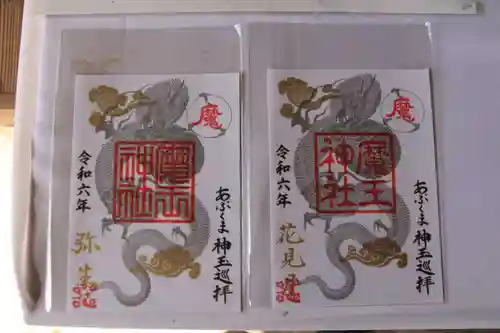 魔
あぶくま神玉巡拝
魔王神社
令和六年
弥生
魔
あぶくま神玉巡拝
魔王神社
令和六年
花見月